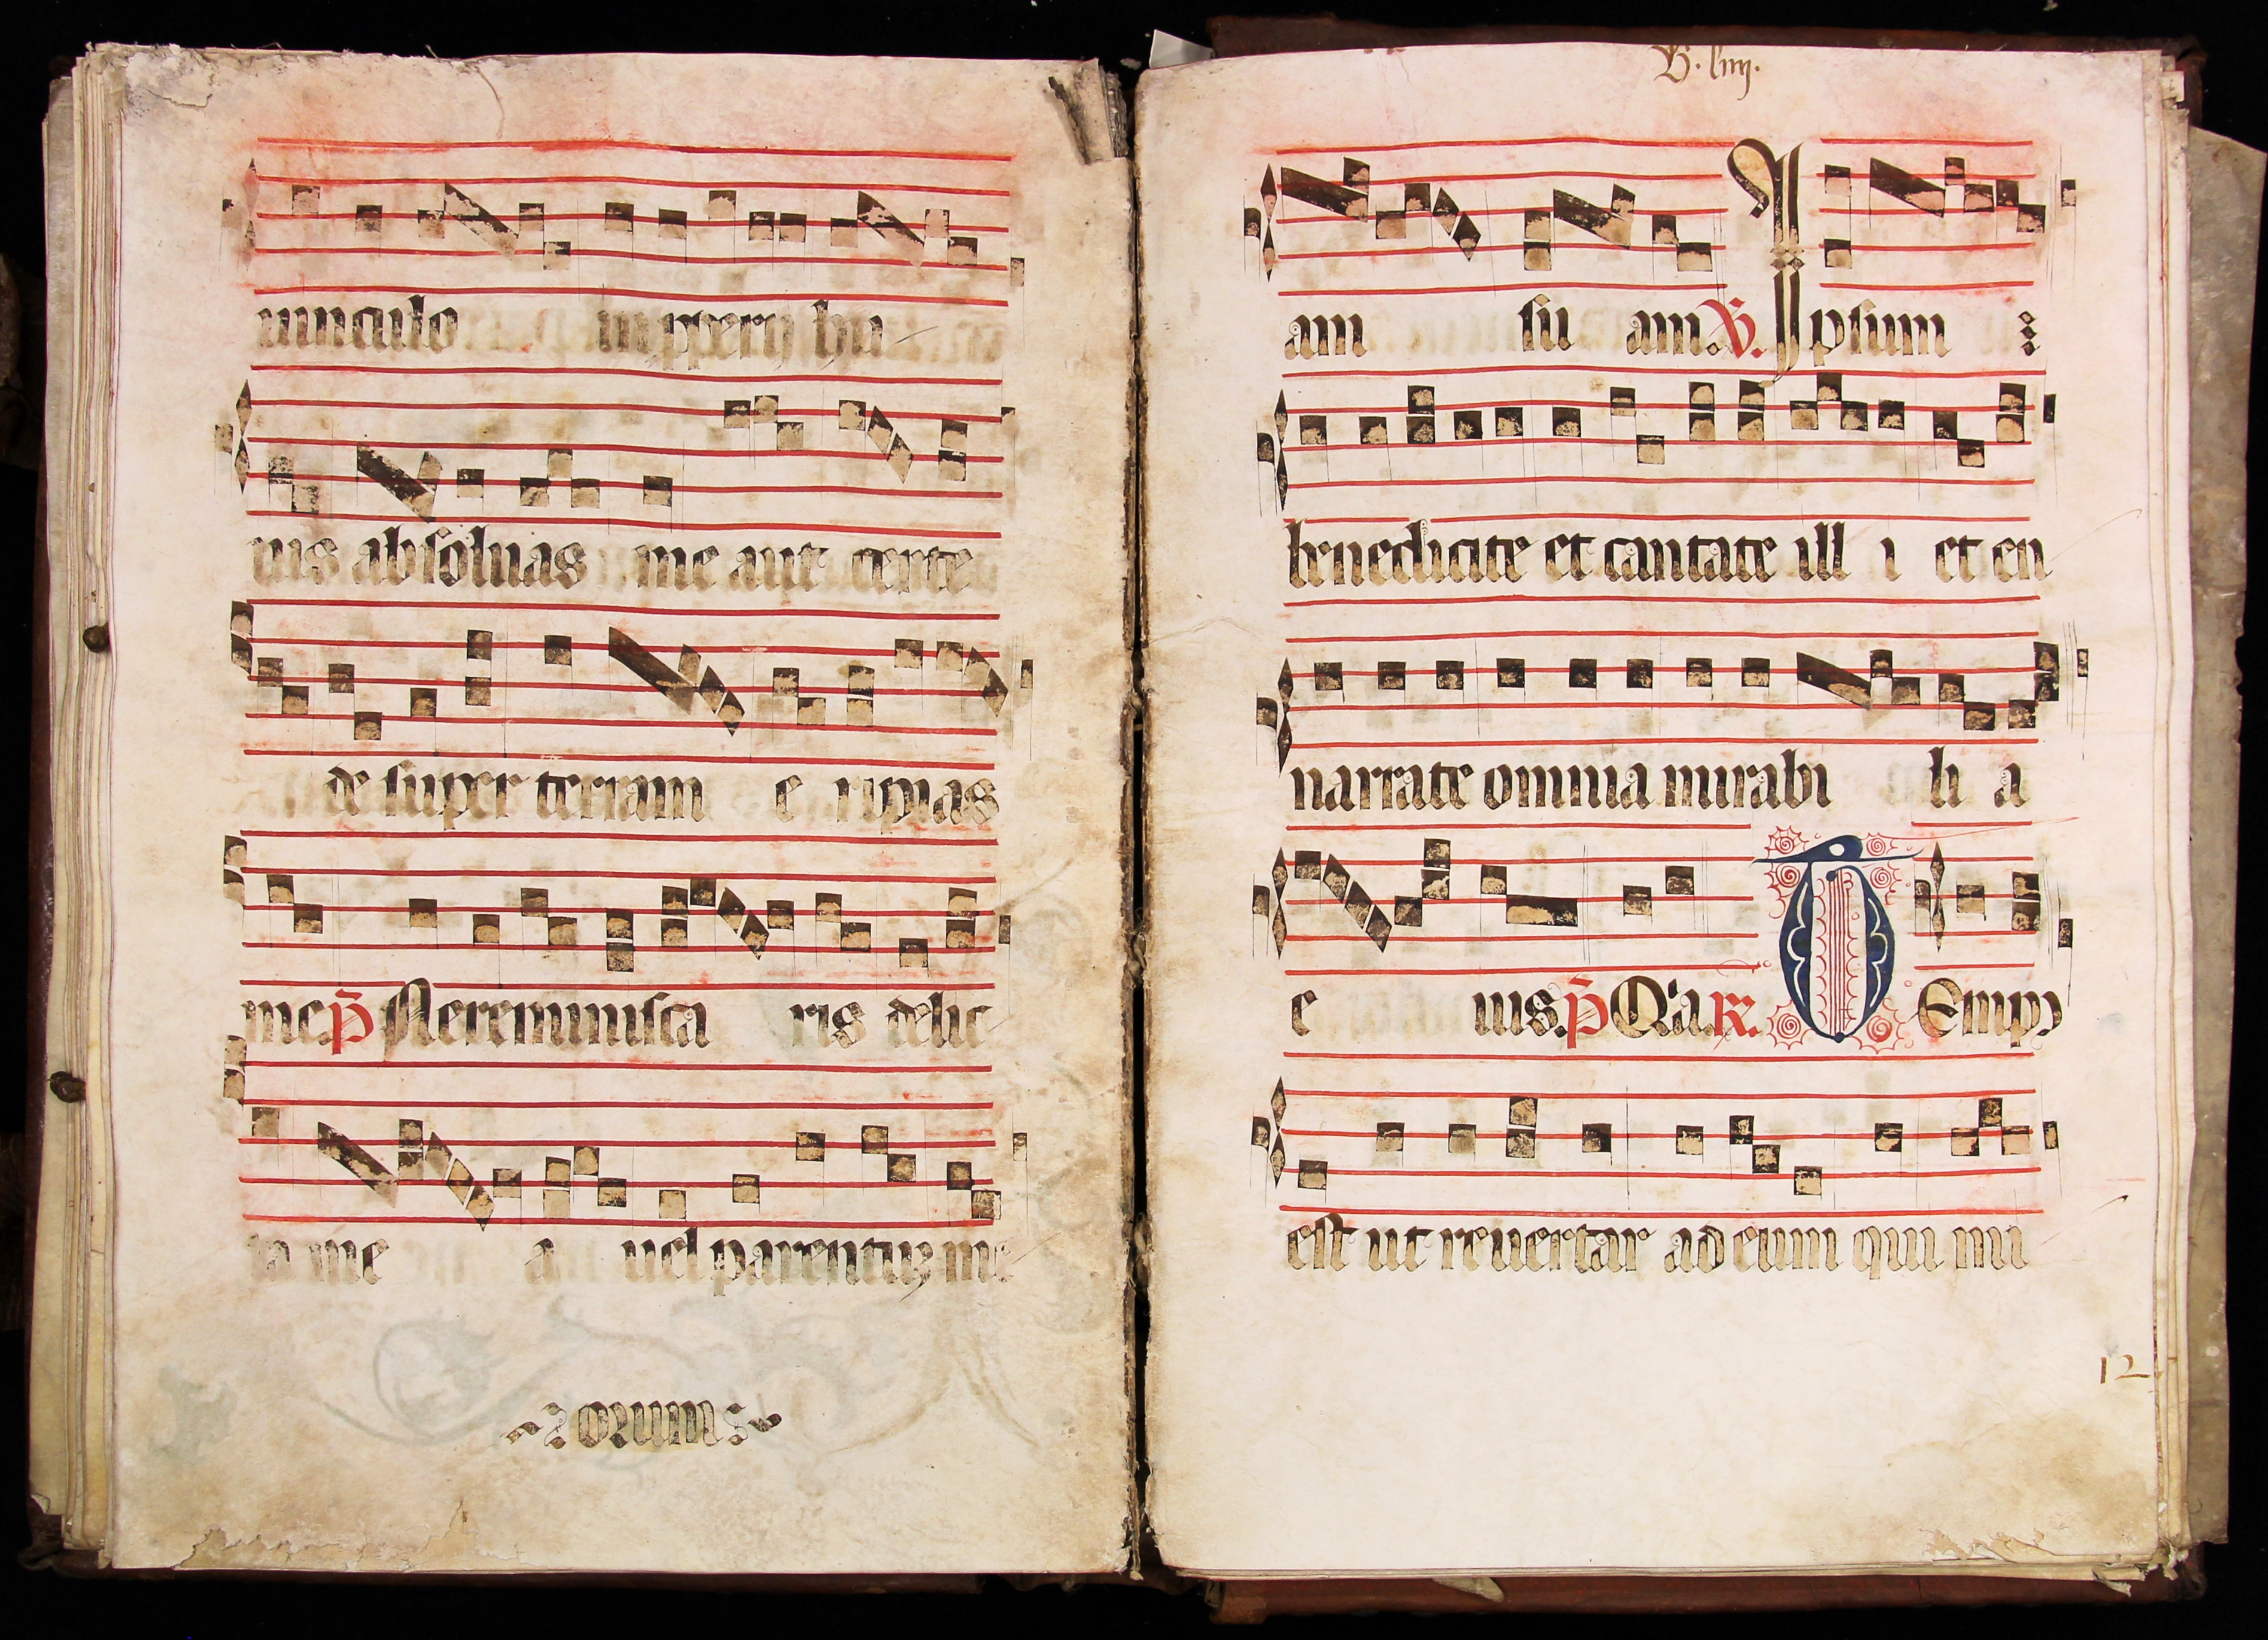 uinculo improperij hu
ius absoluas me aut certe
de super terram e ripias
me p̄ Ne reminisca ris delic
ta me a uel parentuȝ me
orum
℣. liiij.
am su am. ℣. Ipsum
benedicite et cantate ill i et en
narrate omnia mirabi li a
e ius. p̄ Qia. ℟. Temp9
est ut reuertar ad eum qui mi
12